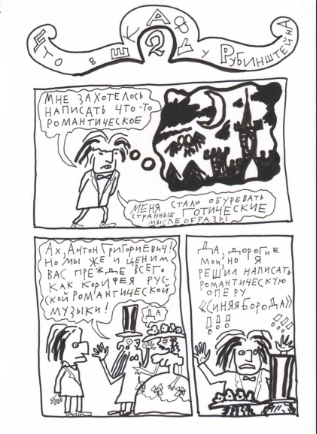 Что в шкафу у Рубинштейна
2
Мне захотелось
написать что-то
романтическое
Меня стали обуревать
странные готические
мыслеобразы
Ах, Антон Григориевич!
Но мы же и ценим
вас прежде всего
как корифея рус-
ской романтической
музыки!
Да
Да, дорогие
мои, но я
решил написать
романтическую
оперу
«Синяя Борода»
!!!